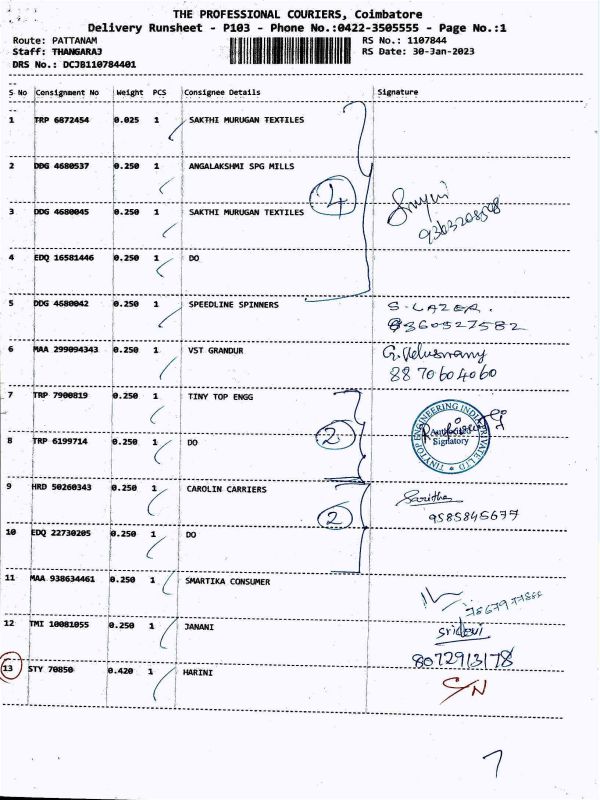 THE PROFESSIONAL COURIERS, Coimbatore
Delivery Runsheet - P103 - Phone No.:0422-3505555 - Page No.:1
Route: PATTANAM RS No.: 1107844
Staff: THANGARAJ RS Date: 30-Jan-2023
DRS No.: DCJB110784401
S No Consignment No Weight PCS Consignee Details Signature
1 TRP 6872454 0.025 1 SAKTHI MURUGAN TEXTILES
2 DDG 4680537 0.250 1 ANGALAKSHMI SPG MILLS
4
3 DDG 4680045 0.250 1 SAKTHI MURUGAN TEXTILES
4 EDQ 16581446 0.250 1 DO
5 DDG 4680042 0.250 1 SPEEDLINE SPINNERS S. LAZER.
9360527582
6 MAA 299094343 0.250 1 VST GRANDUR G. Velusamy
8870604060
7 TRP 7900819 0.250 1 TINY TOP ENGG
2
TINY TOP ENGINEERING INDIA PRIVATE LTD
Authorised
Signatory
8 TRP 6199714 0.250 1 DO
9 HRD 50260343 0.250 1 CAROLIN CARRIERS Saritha
2 9585845677
10 EDQ 22730205 0.250 1 DO
11 MAA 938634461 0.250 1 SMARTIKA CONSUMER
12 TMI 10081055 0.250 1 JANANI sridevi
8072913178
13 STY 70850 0.420 1 HARINI C/N
7